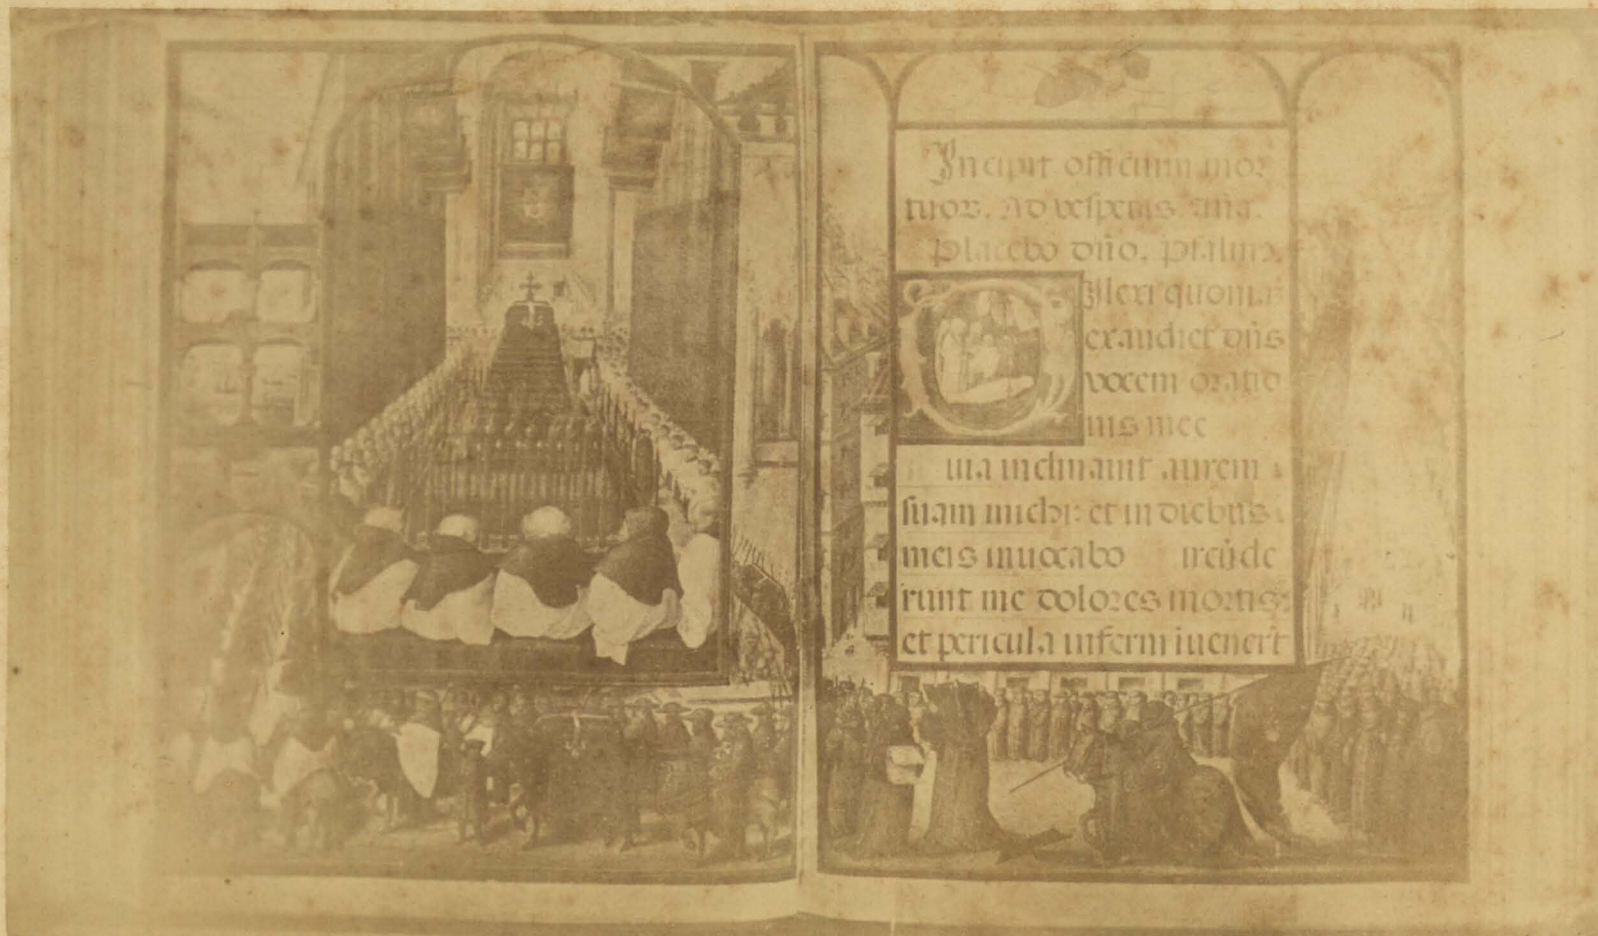 Incipit officium mor
tuor. Ad vesperas. Aña.
Placebo dño. Psalmꝰ.
Dilexi quoniã
exaudiet dñs
vocem oratio
nis mee
uia inclinauit aurem
suam michi: et in diebus
meis inuocabo ircũde
runt me dolores mortis:
et pericula inferni iuenerũt